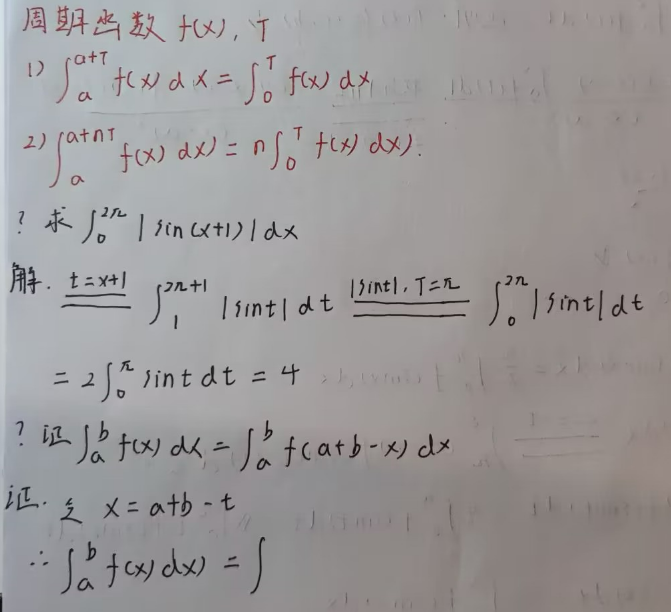 周期函数 f(x), T
1) ∫_a^{a+T} f(x) dx = ∫_0^T f(x) dx
2) ∫_a^{a+nT} f(x) dx) = n∫_0^T f(x) dx).
? 求 ∫_0^{2π} |sin(x+1)| dx
解. t=x+1 ∫_1^{2π+1} |sint| dt |sint|, T=π ∫_0^{2π} |sint| dt
= 2∫_0^π sint dt = 4
? 证 ∫_a^b f(x) dx = ∫_a^b f(a+b-x) dx
证. 令 x = a+b-t
∴ ∫_a^b f(x) dx) = ∫